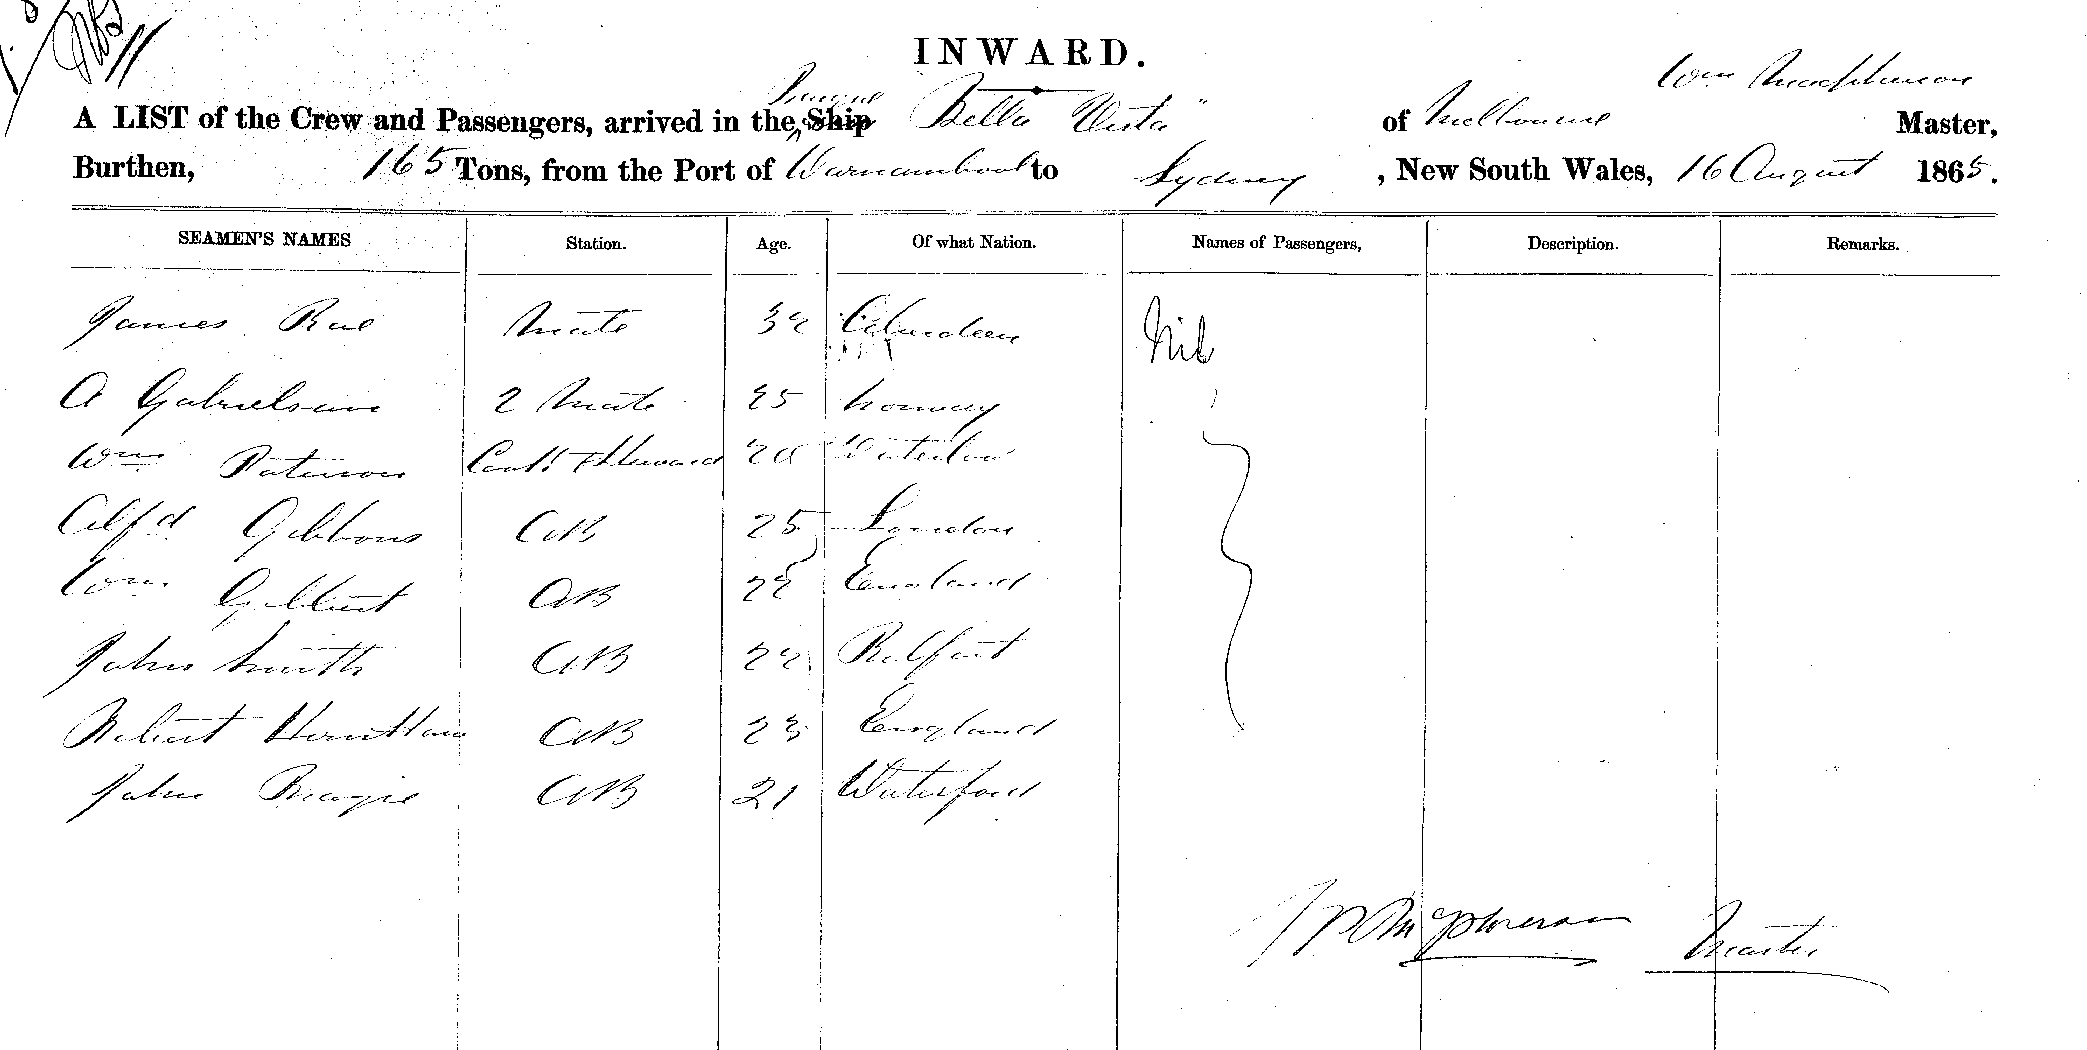 INWARD.
Wm Macpherson
A LIST of the Crew and Passengers, arrived in the Ship "Bella Vista" of Melbourne Master,
Burthen, 165 Tons, from the Port of Warnambool to Sydney, New South Wales, 16 August 1865.
SEAMEN'S NAMES Station. Age. Of what Nation. Names of Passengers, Description. Remarks.
James Rae Mate 32 Aberdeen Nil
A Gabrielson 2 Mate 25 Norway
Wm Paterson Cook & Steward 20 Waterloo
Alfd Gibbons AB 25 London
Wm Gilbert AB 22 England
John Smith AB 22 Belfast
Robert AB 23 England
John AB 21 Waterford
Mcpherson Master